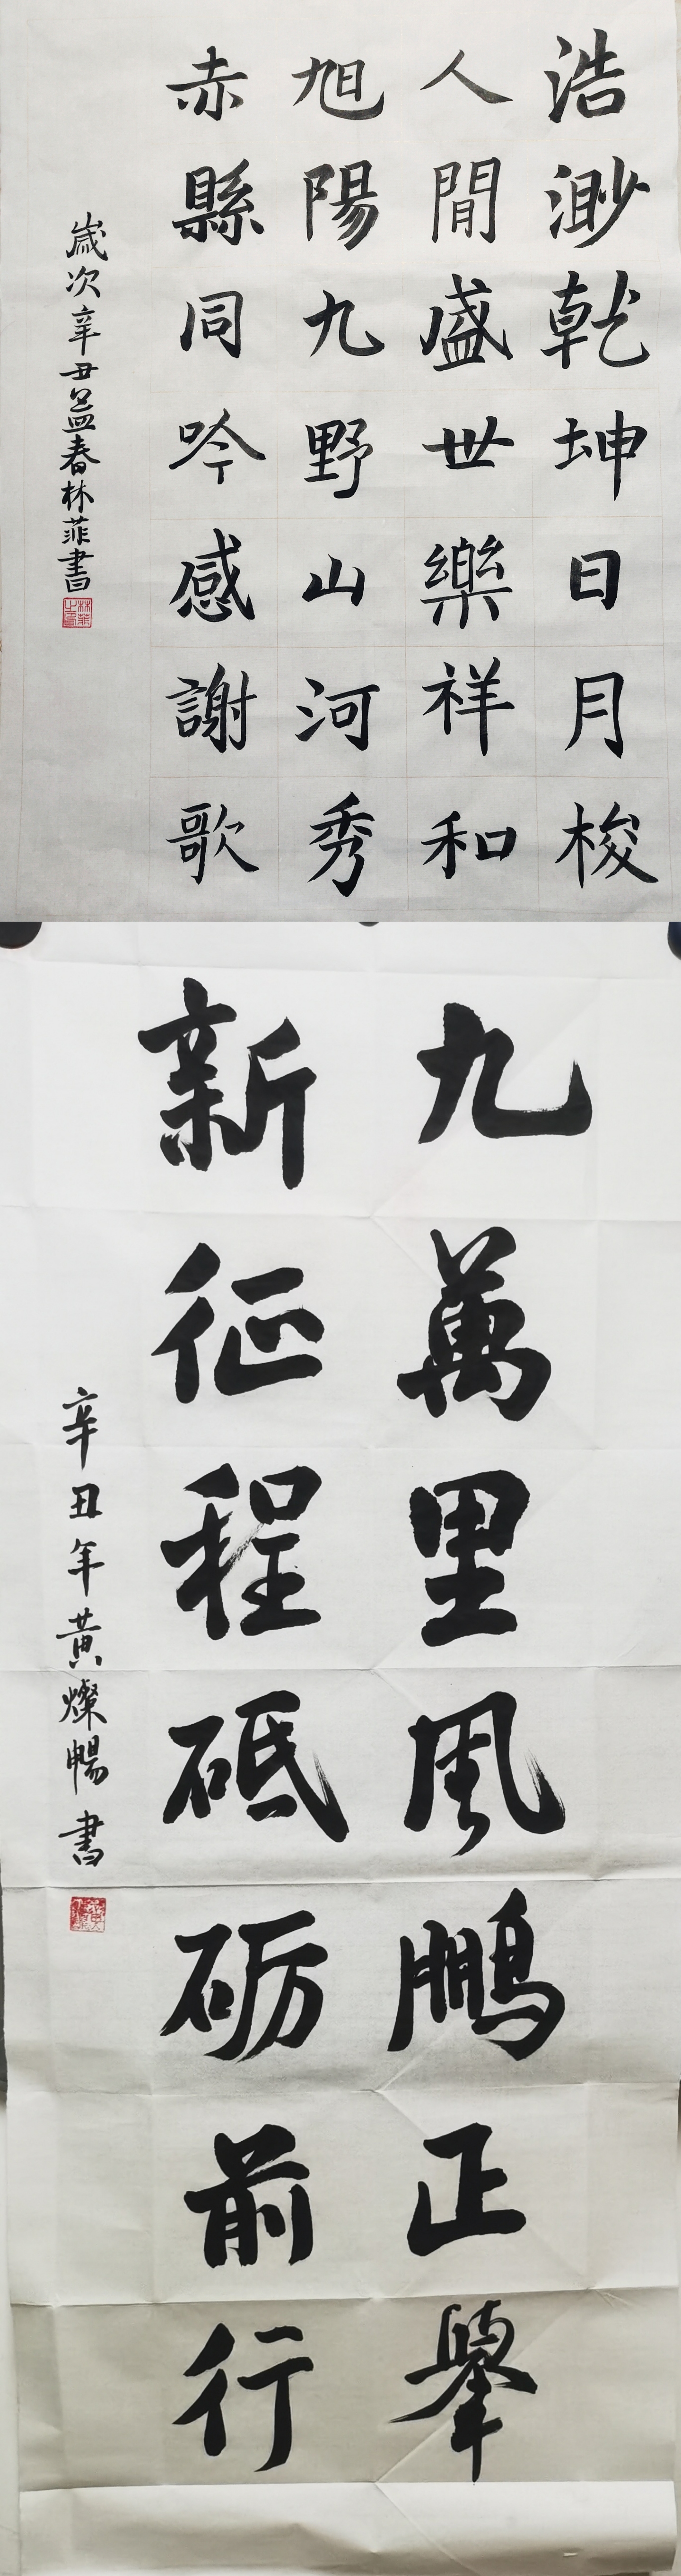 浩渺乾坤日月梭
人間盛世樂祥和
旭陽九野山河秀
赤縣同吟感謝歌
歲次辛丑孟春林菲書
九萬里风鹏正舉
新征程砥砺前行
辛丑年黄燦暢書